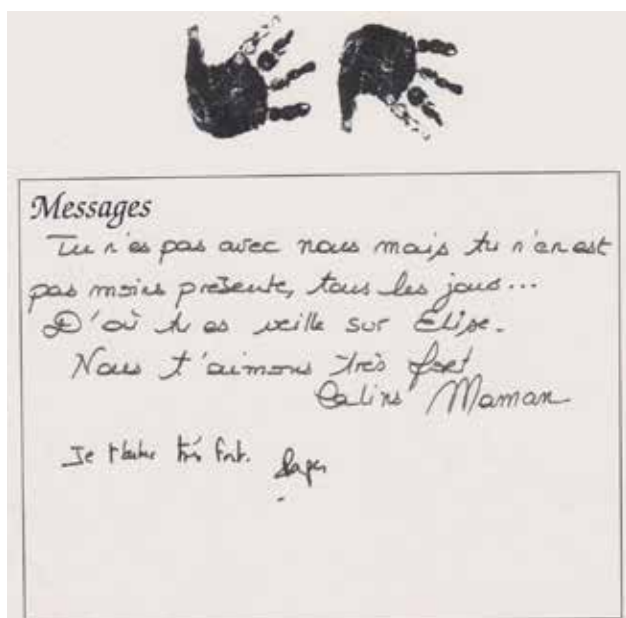 Messages
Tu n'es pas avec nous mais tu n'en est
pas moins présente, tous les jours...
D'où tu es veille sur Elise.
Nous t'aimons très fort
Calins Maman
Je t'aime très fort. Papa